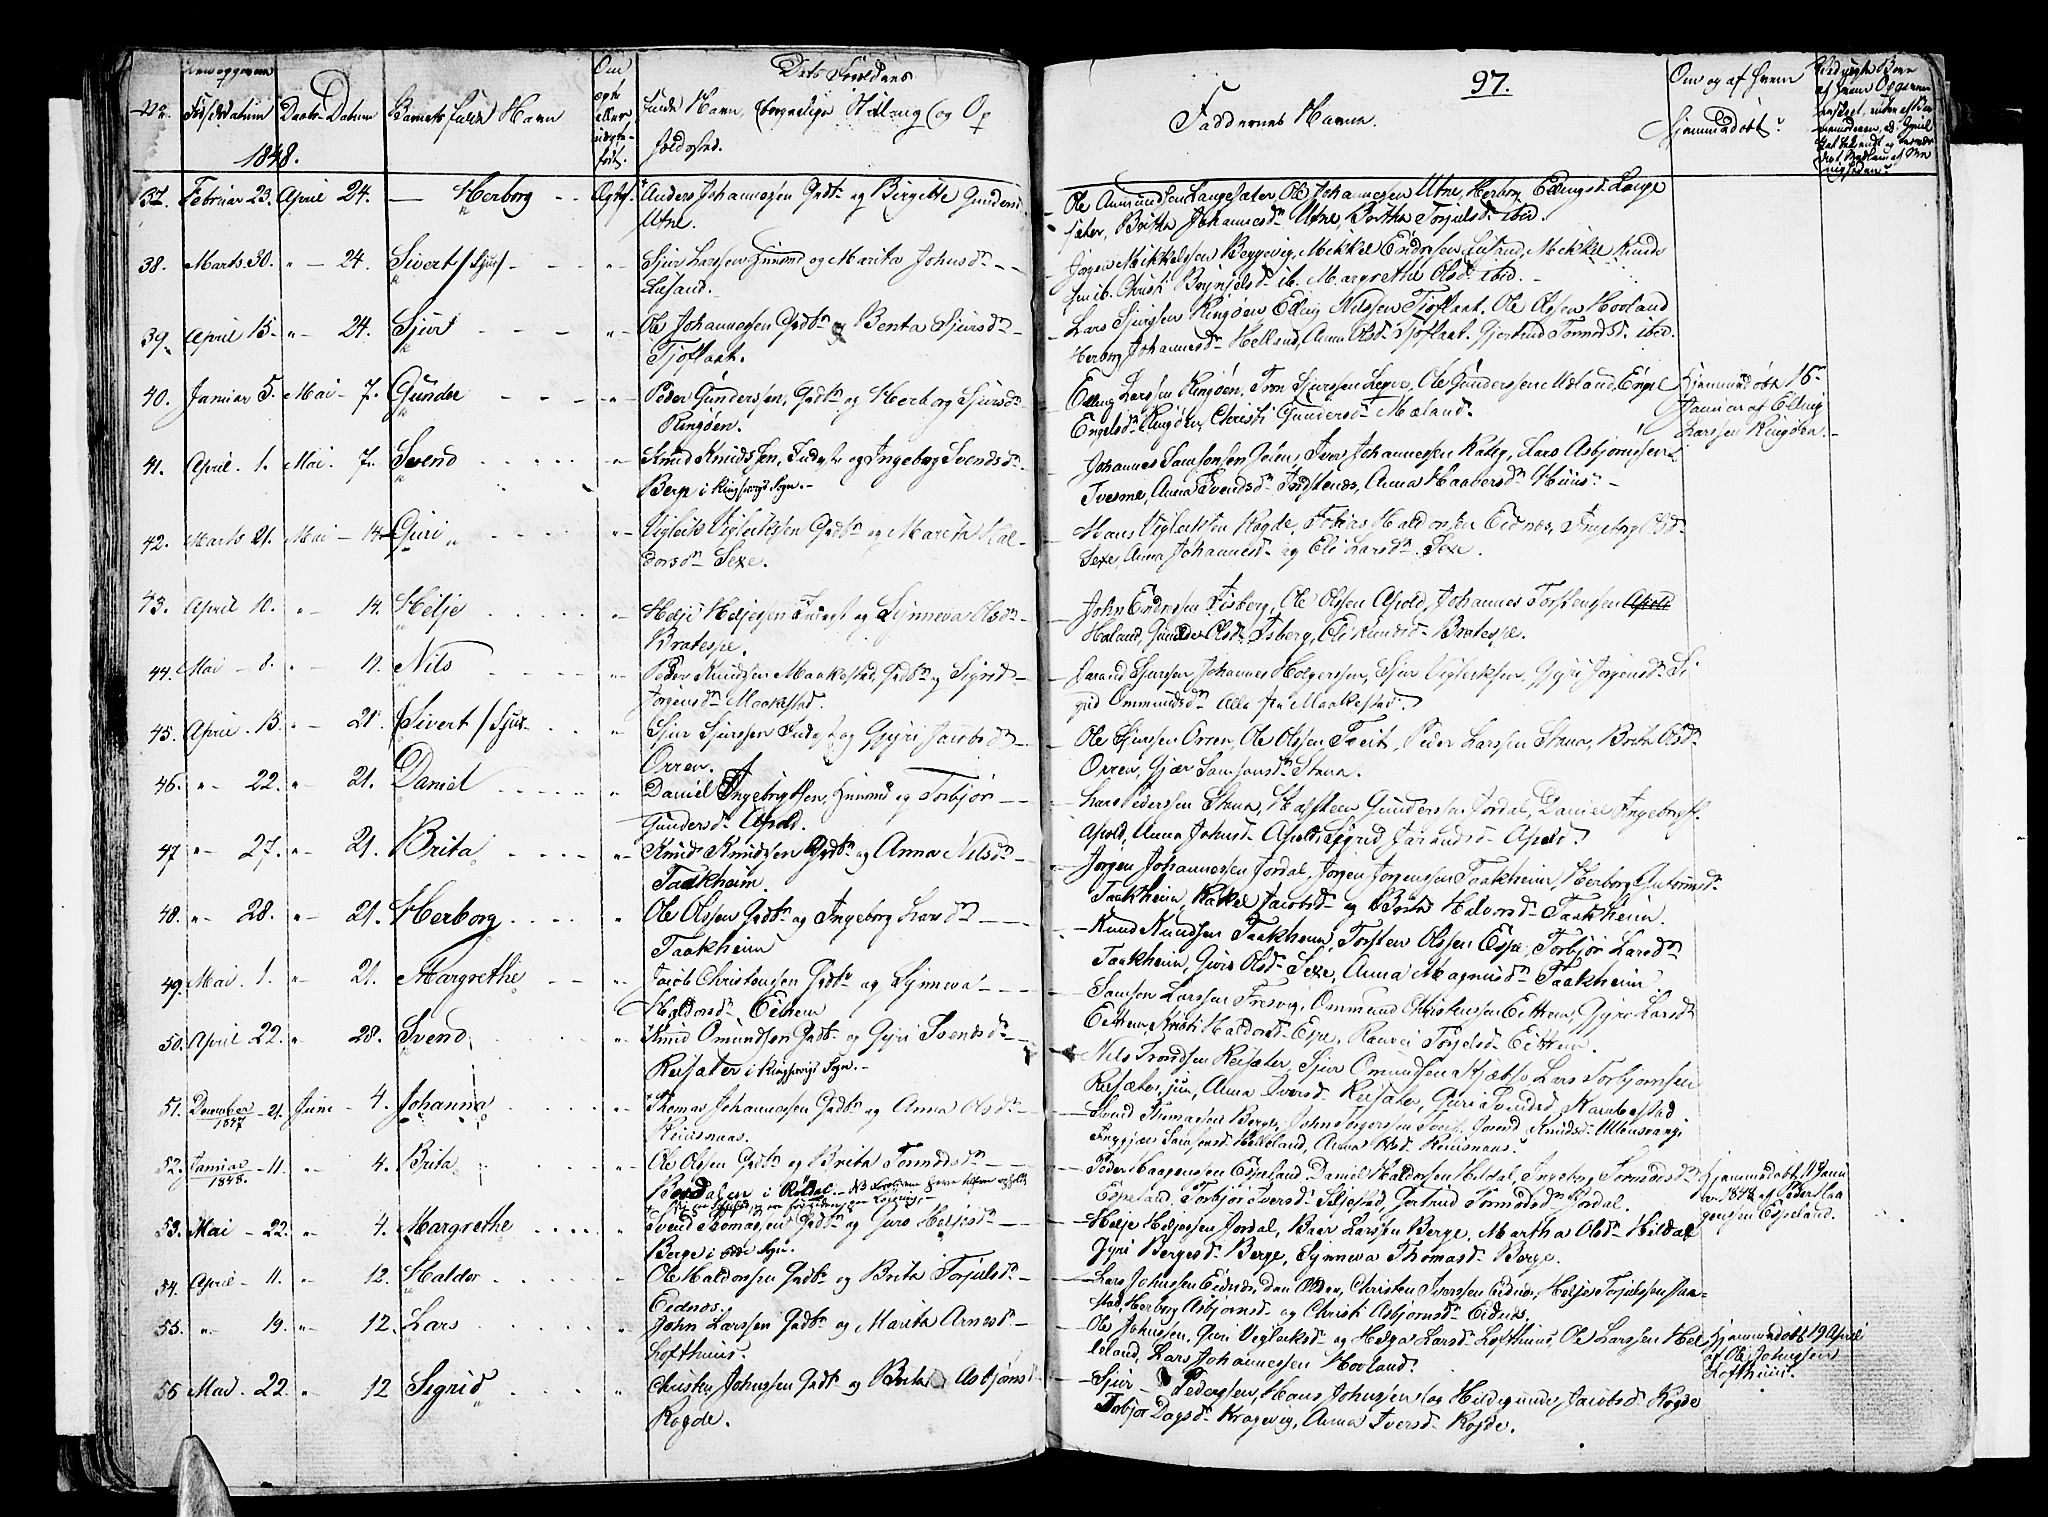 97.
No. Fødselsdatum Daabs-Datum Barnets fulde Navn
Om ægte eller uægte født.
Dets Forældres
fulde Navn, borgerlige Stilling og Op
holdssted.
Faddernes Navne.
Om og af hvem
hjemmedøbt.
1848.
37. Februar 23. April 24. — Herborg Ægte
Anders Johannesen Grdbr og Birgitte Gunders
Utne.
Ole Amundsen Langesæter, Ole Johannesen Utne, Herborg Ellingsd. Lange
sæter, Britha Johannesdr Utne, Bertha Torjulsdr ibid.
38. Marts 30. " — 24. Sivert /Sjur/ "
Sjur Larssen Huusmd og Marita Johnsdr
Lusand.
Jørgen Mikkelssen, Mikkel Endresen Lusand, Mikkel Knuds
sen ib. Christi Brynjelsdr ib. Margrethe Olsdr ibid.
39. April 15. " — 24. Sjur "
Ole Johannessen Grdbr og Benta Sjursdr
Tjoflaat.
Lars Sjursen Ringøen, Elling Nilssen Tjoflaat, Ole Olssen Hovland
Herborg Johannesdr Helland, Anna Olsdr Tjoflaat. Gjertrud Tormodsdr ibid.
40. Januar 5. Mai — 7. Gunder "
Peder Gunderssen, Grdbr og Herborg Sjursdr
Ringøen.
Elling Larssen Ringøen, Sjursen Legre, Ole Gunderssen Mæland, Engel
Engelsdr Ringøen, Christi Gundersdr Mæland.
Hjemmedøbt 16
Januar af Elling
Larssen Ringøen.
41. April. 1. Mai. 7. Svend "
Knud Knudssen, Inderst og Ingeborg Svendsdr
Berge i Kingservigs Sogn.
Johannes Samsonsen, Iver Johannessen, Lars Asbjørnssen
Tvesme, Anna Svendsdr, Anna Haaversdr Huus
42. Marts 21. Mai — 14 Guri "
Vigleik Vigleikssen Grdbr og Marita Hal-
dorsdr Sexe.
Hans Vigleikssen Rogde, Tobias Haldorsen Eidnes, Ingeborg Olsdr
Sexe, Anna Johannesdr og Eli Larsdr Sexe.
43. April 10. " 14. Helje "
Helje Heljesen Inderst og Synneva Olsdr
Bratespe.
John Endresen Isberg, Ole Olssen Apold, Johannes Torstenssen Apold
Haland, Gunder Olsdr Isberg, Eli Knudsdr Bratespe.
44. Mai — 8. " Nils "
Peder Knudsen Maakestad, Grdbr og Sigrid
Jørgensdr Maakestad.
Sjursen, Johannes Holgerssen, Sjur Vigleiksen, Gyri Jørgensdr Si
grid Ommundsdr Alle fra Maakestad.
45. April. 15. " — 21. Sivert /Sjur "
Sjur Sjurssen Inderst og Gyri Jacobsdr
Orren.
Ole Sjurssen Orren, Ole Olssen Freit, Peder Larssen Stana, Brita Olsdr
Orren, Gjær Samsonsdr Stana.
46. " 22. " — 21. Daniel "
Daniel Ingebrigtsen, Huusmd og Torbjør
Gundersdr Apold.
Lars Pederssen Stana, Halsteen Gunderssen Jordal, Daniel Ingebrigts.
Apold, Anna Johnsdr Apold, Sigrid Jarandsdr Apold.
47 " 27. " 21. Brita "
Knud Knudssen Grdbr og Anna Nilsdr
Taakheim.
Jørgen Johannessen Jordal, Jørgen Jørgensen Taakheim, Herborg Gutormsdr
Taakheim, Rakel Jacobsdr og Brita Halvorsdr Taakheim.
48. " 28. " 21. Herborg "
Ole Olssen Grdbr og Ingeborg Larsdr
Taakheim
Knud Knudsen Taakheim, Torsten Olssen Espe, Torbjør Larsdr
Taakheim, Guri Olsdr Sexe, Anna Magnusdr Taakheim.
49. Mai. 1. " 21. Margrethe "
Jacob Christensen Grdbr og Synneva
Haldorsdr Eitrem
Samson Larssen Tresvig, Ommund Christensen Eitrem, Gyri Larsdr
Eitrem, Kristi Haldorsdr Espe, Ranvei Torjelsdr Eitrem.
50. April 22. " — 28. Svend "
Knud Omundsen Grdbr og Gyri Svendsdr
Reisæter i Kingservigs Sogn.
Nils Trondsen Reisæter, Sjur Omundsen, Lars Torbjørnsen
Reisæter, jun, Anna Iversdr Reisæter, Guri Svendsd. Kambestad
51. December 1847 — 21. Juni — 4. Johanna "
Thomas Johannessen Grdbr og Anna Olsdr
Reiisnaas.
Svend Thomassen Berge, John Torgersen Freit, Knudsdr Ullensvang
Samsonsdr Helleland, Anna Olsdr Reiisnaas.
52. Januar 1848. — 11. " 4. Brita "
Ole Olssen Grdbr og Brita Tormodsdr
i Røldal
Peder Haagensen Espeland, Daniel Haldorssen Hildal, Ingeborg Tormodsdr
Espeland, Torbjør Iversdr Seljestad, Gertrud Tormodsdr Jordal.
Hjemmedøbt 11 Janu
ar 1848 af Peder Haa
gensen Espeland.
53. Mai — 22. " 4. Margrethe "
Svend Thomassen Grdbr og Guro Heljesdr
Berge i Odde Sogn.
Helje Heljesen Jordal, Baar Larssen Berge, Martha Olsdr Hildal
Gyri Bergesdr Berge, Synneva Thomasdr Berge.
54. April — 11. " 12. Haldor "
Ole Haldorssen Grdbr og Brita Torjulsdr
Eidnes.
Lars Johnssen Eidnes, den Ældre, Christen Iverssen Eidnes, Helje Torjulssen
Herborg Asbjørnsdr og Christi Asbjørnsdr Eidnes.
55. " 19. " 12. Lars "
John Larssen Grdbr og Marita Arnesdr
Lofthuus.
Ole Johnssen, Guri Vigleiksdr og Helga Larsdr Lofthuus, Ole Larssen Hel
leland, Lars Johannessen Hovland.
Hjemmedøbt 19 April
af Ole Johnssen
Lofthuus.
56 Mai 22. " 12 Sigrid "
Christen Johnssen Grdbr og Brita Asbjørnsd.
Rogde.
Sjur Pederssen, Hans Johnssen og Hildegunde Jacobsdr Rogde
Torbjør Dagsdr Kragevig, Anna Iversdr Rogde.